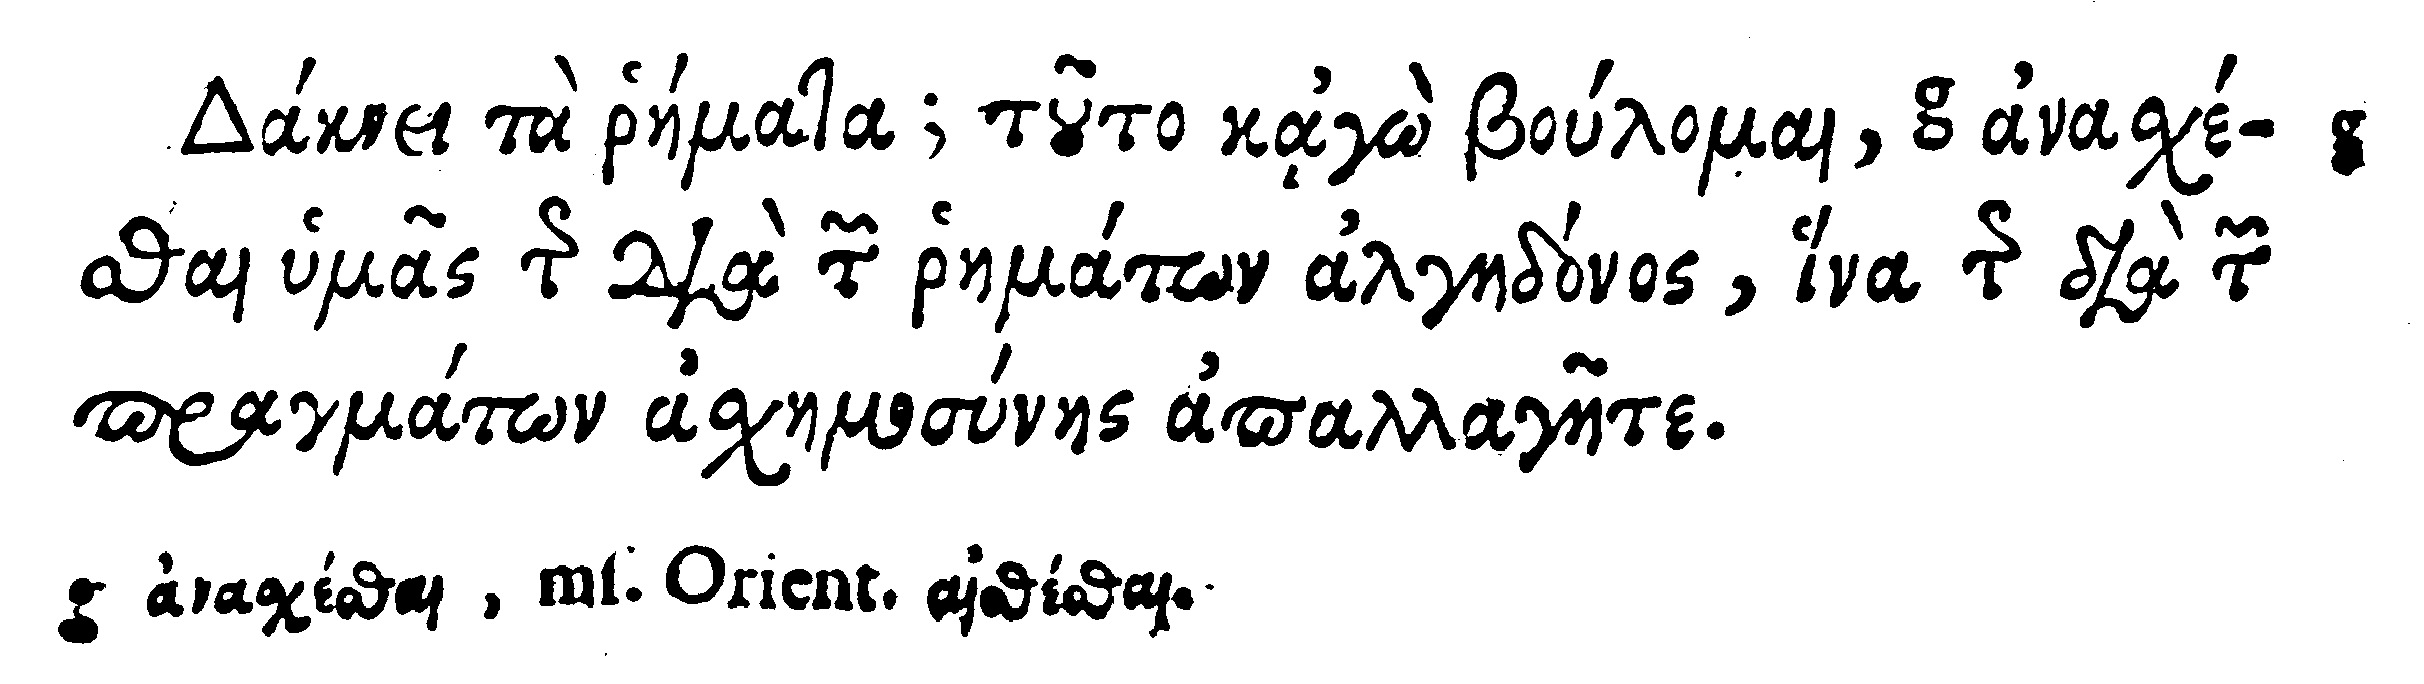 Δάκνει τὰ ῥήματα; τοῦτο κᾀγὼ βούλομαι, g ἀνασχέ- g
σθαι ὑμᾶς τῆς διὰ τῶν ῥημάτων ἀλγηδόνος, ἵνα τῆς διὰ τῶν
πραγμάτων ἀσχημοσύνης ἀπαλλαγῆτε.
g ἀνασχέσθαι, mſ. Orient. αἰσθέσθαι.